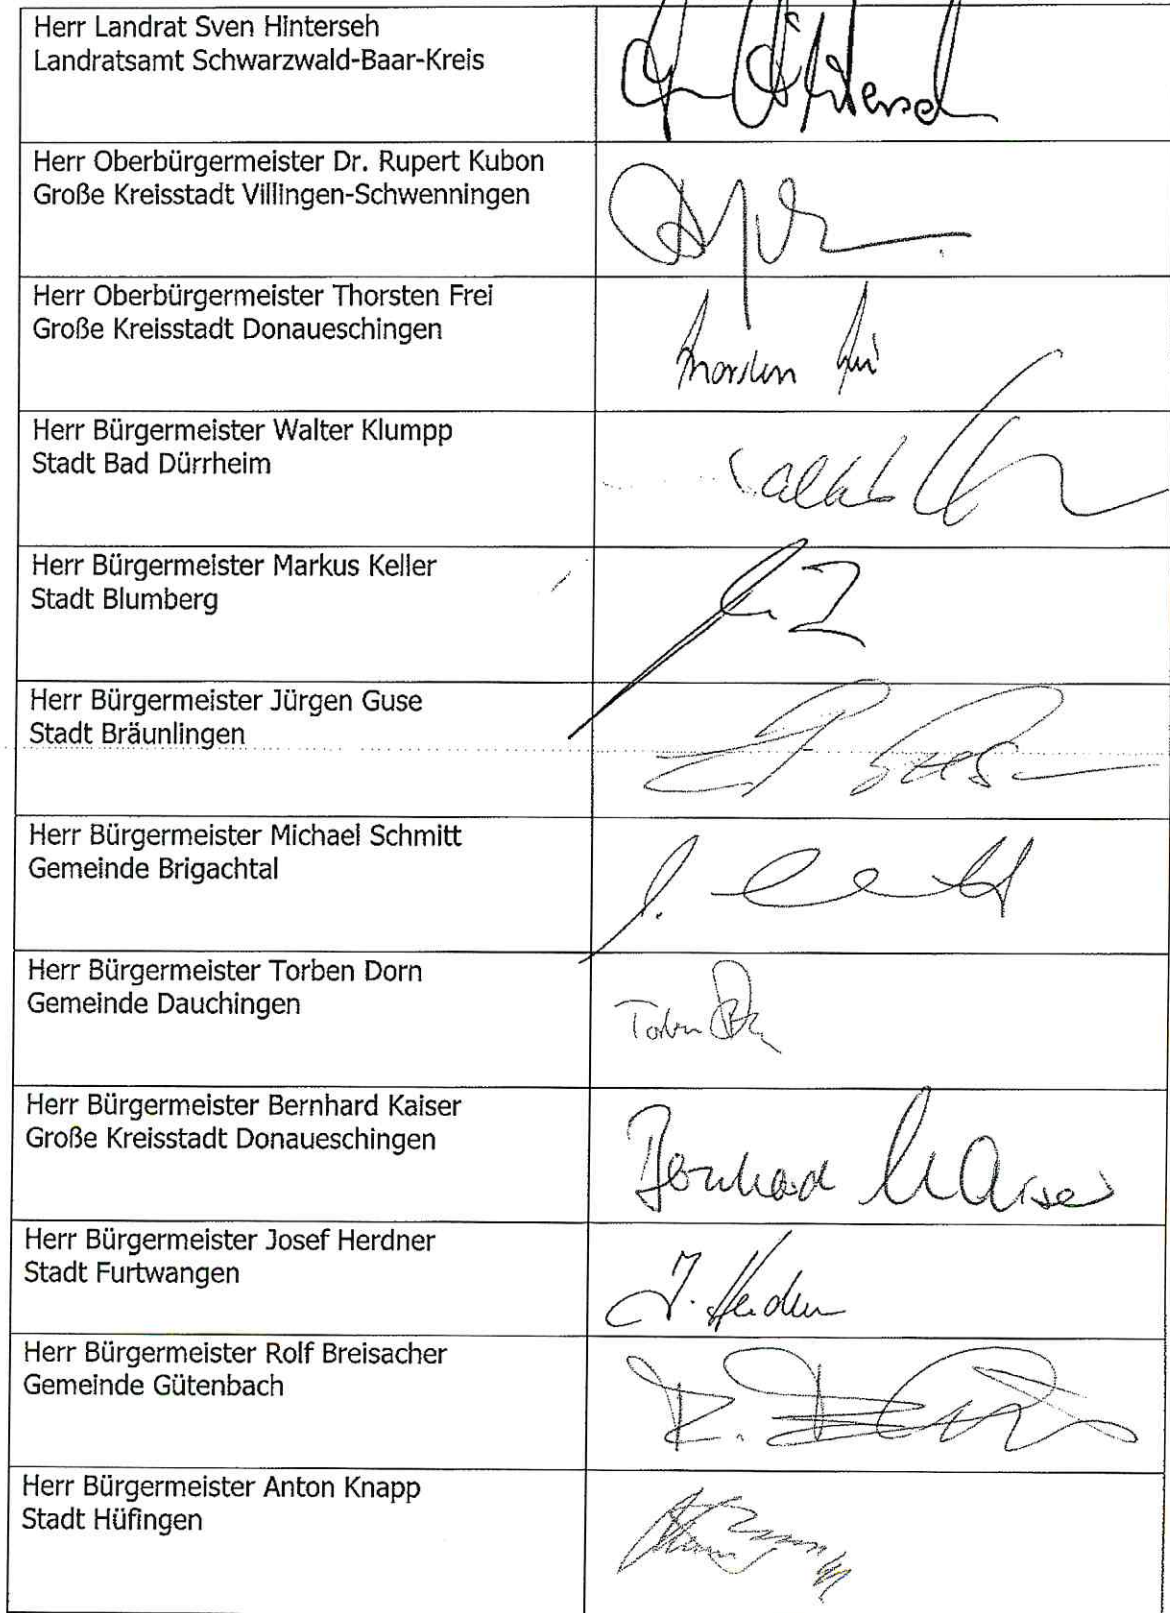 Herr Landrat Sven Hinterseh
Landratsamt Schwarzwald-Baar-Kreis
Herr Oberbürgermeister Dr. Rupert Kubon
Große Kreisstadt Villingen-Schwenningen
Herr Oberbürgermeister Thorsten Frei
Große Kreisstadt Donaueschingen
Thorsten Frei
Herr Bürgermeister Walter Klumpp
Stadt Bad Dürrheim
Herr Bürgermeister Markus Keller
Stadt Blumberg
Herr Bürgermeister Jürgen Guse
Stadt Bräunlingen
Herr Bürgermeister Michael Schmitt
Gemeinde Brigachtal
Herr Bürgermeister Torben Dorn
Gemeinde Dauchingen
Torben
Herr Bürgermeister Bernhard Kaiser
Große Kreisstadt Donaueschingen
Bernhard Kaiser
Herr Bürgermeister Josef Herdner
Stadt Furtwangen
J. Herdner
Herr Bürgermeister Rolf Breisacher
Gemeinde Gütenbach
Herr Bürgermeister Anton Knapp
Stadt Hüfingen